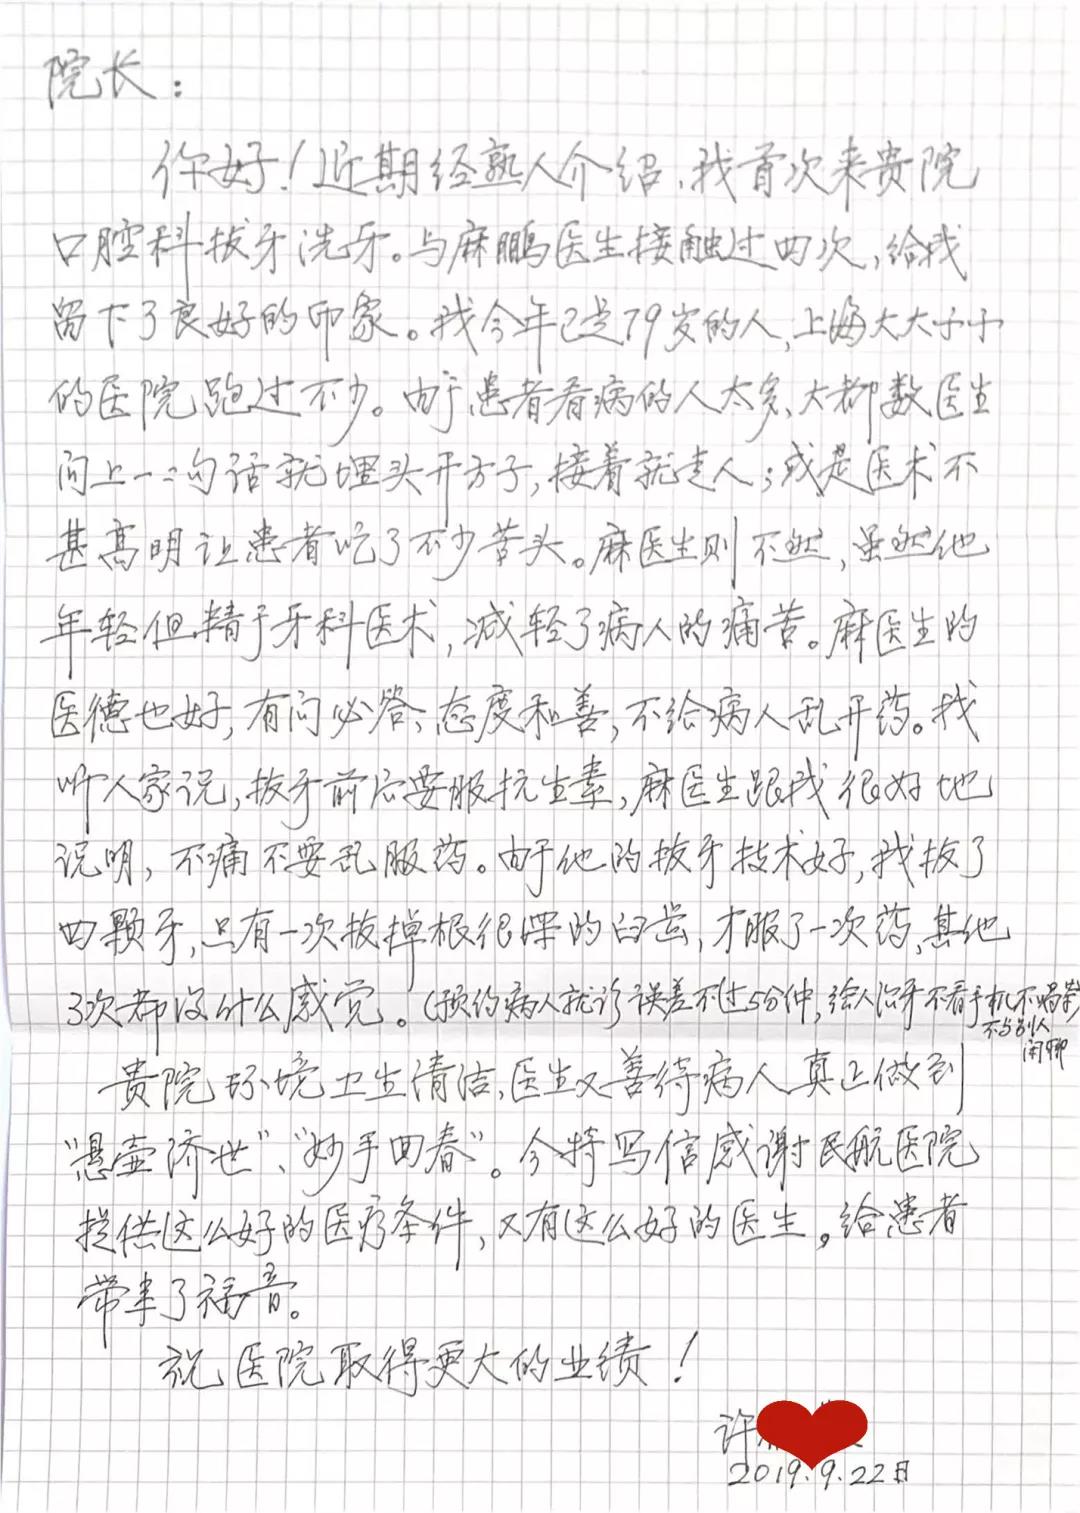 院长：
你好！近期经熟人介绍、我首次来贵院
口腔科拔牙洗牙。与麻鹏医生接触过四次，给我
留下了良好的印象。我今年已是79岁的人，上海大大子子
的医院跑过不少。由于患者看病的人太多、大都数医生
问上一二句话就埋头开方子，接着就走人；或是医术不
甚高明让患者吃了不少苦头。麻医生则不然，虽然他
年轻但精于牙科医术，减轻了病人的痛苦。麻医生的
医德也好，有问必答；态度和善，不给病人乱开药。我
听人家说，拔牙前后要服抗生素，麻医生跟我很好地
说明，不痛不要乱服药。由于他的拔牙技术好，我拔了
四颗牙，只有一次拔掉根很深的臼齿，才服了一次药，其他
3次都没什么感觉。（预约病人就诊误差不过5分钟，给人治牙不看手机不喝茶）
不与别人
闲聊
贵院环境卫生清洁、医生又善待病人真正做到
“悬壶济世”、“妙手回春”。今特写信感谢民航医院
提供这么好的医疗条件，又有这么好的医生。给患者
带来了福音。
祝医院取得更大的业绩！
许
2019.9.22日